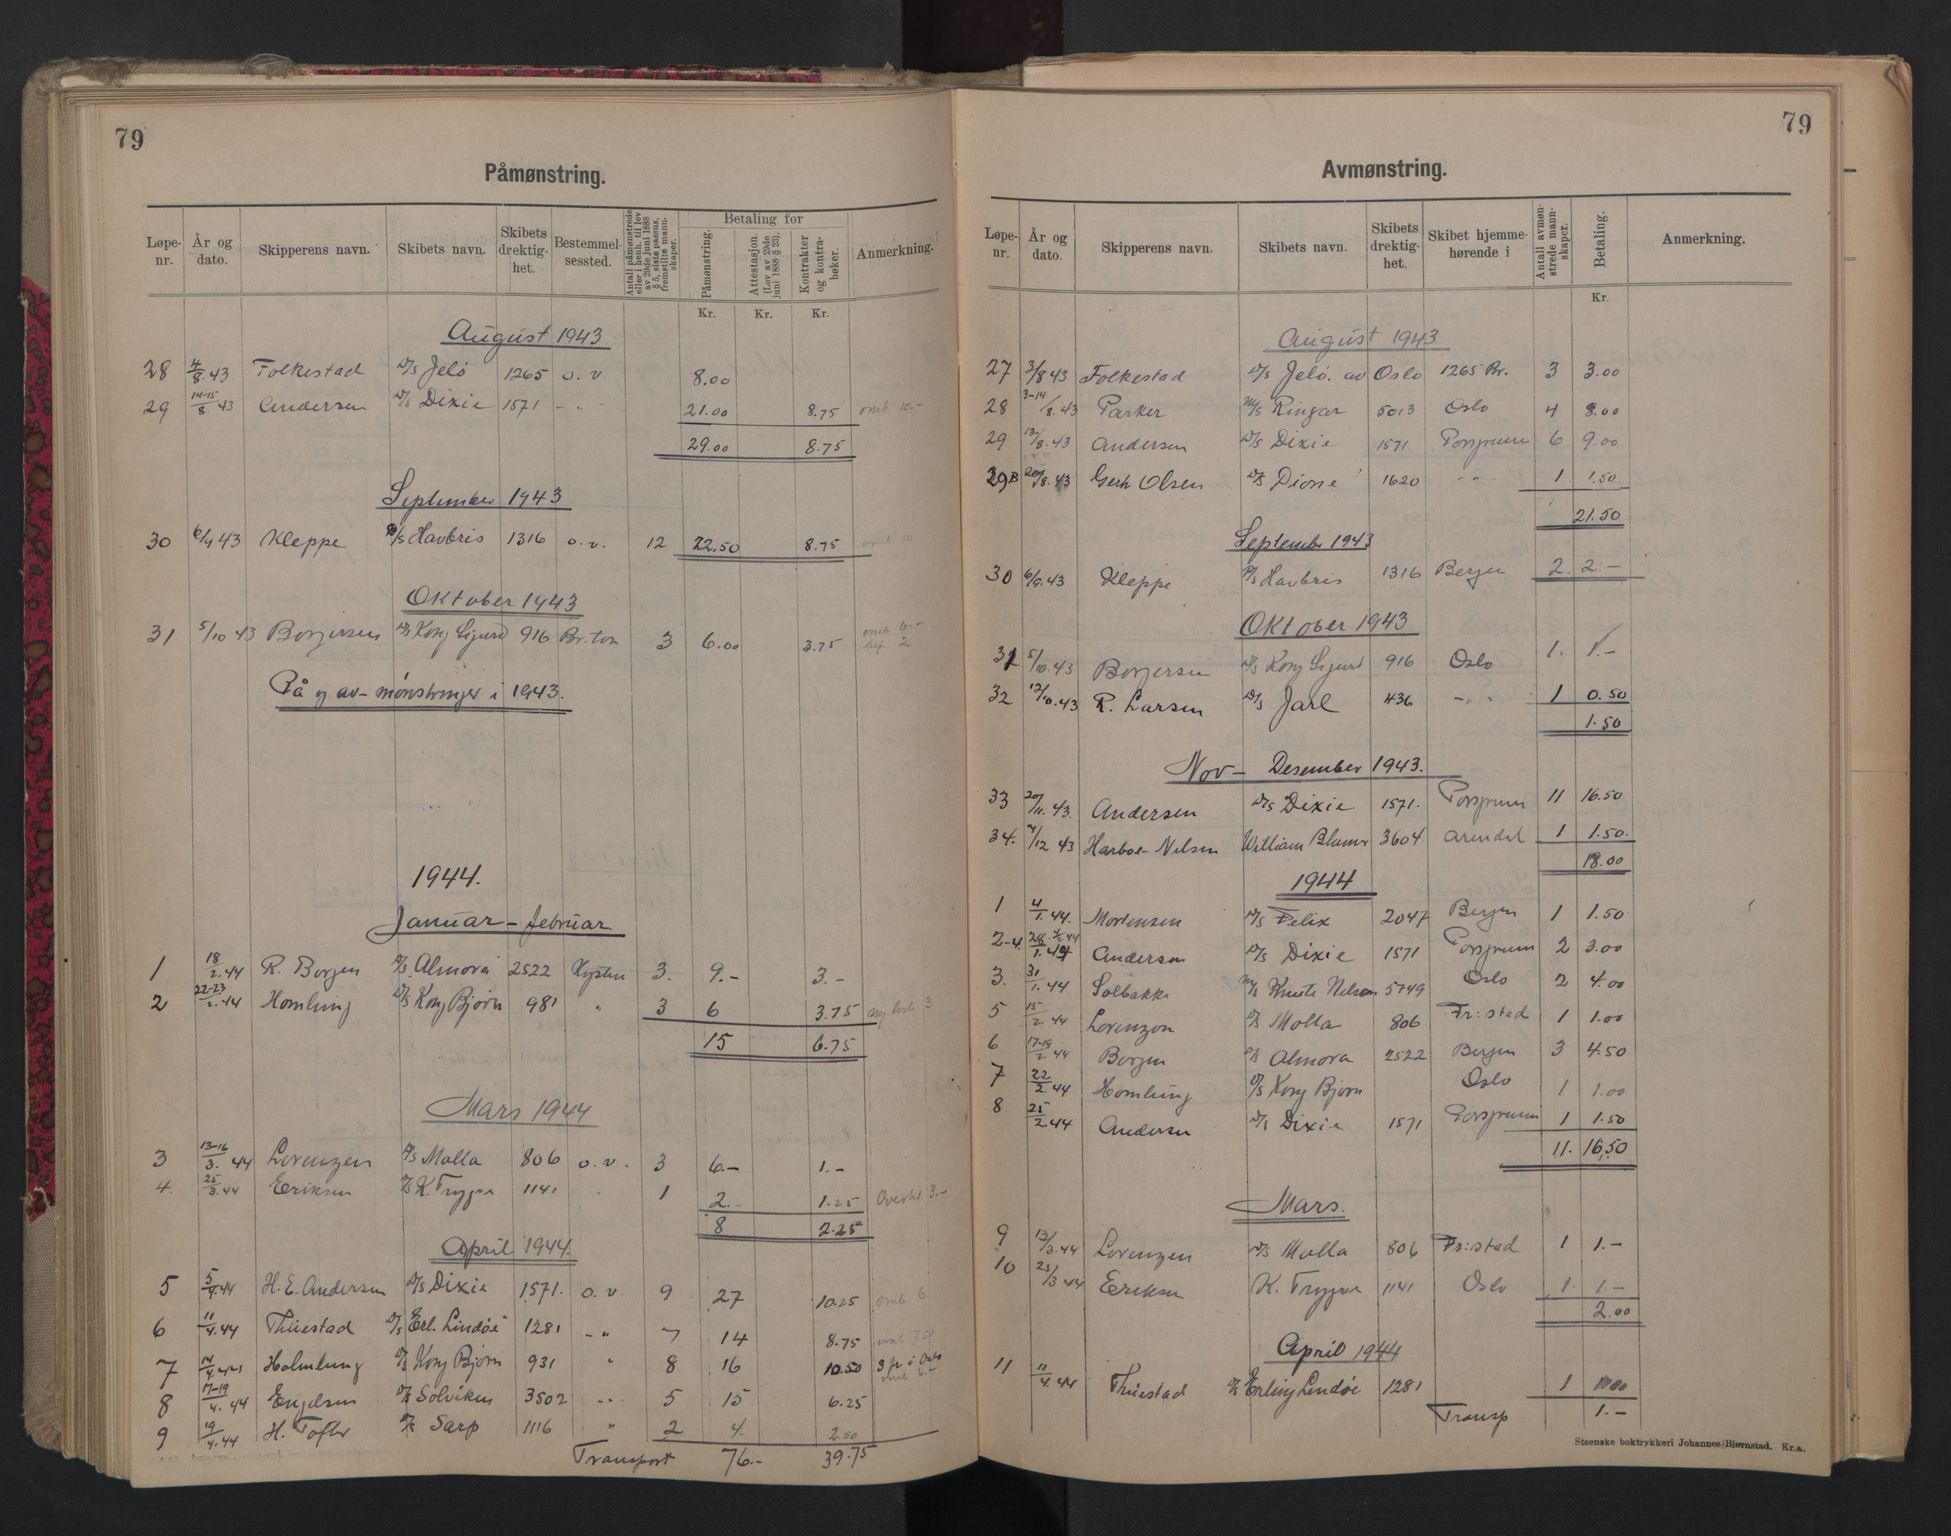 79
Påmønstring.
Løpe-nr. År og dato. Skipperens navn. Skibets navn. Skibets drektig-het. Bestemmel-sessted. Antall påmønstrede eller i henh. til lov av 29de juni 1888 § 5, siste passus, fremstilte mann-skaper. Betaling for Påmønstring. Attestasjon. (Lov av 29de juni 1888 § 23). Kontrakter og kontra-bøker. Anmerkning.
Kr. Kr. Kr.
August 1943
28 4/8.43 Folkestad D/S Jelø 1265 o.v 8.00
29 14-15/8.43 Andersen D/S Dixie 1571 - " - 21.00 8.75 omb 10.-
29.00 8.75
September 1943
30 6/9 43 Kleppe D/S Havbris 1316 o.v. 12 22.50 8.75 omb 10
Oktober 1943
31 5/10 43 Borjersen D/S Kong Sigurd 916 Br. ton 3 6.00 3.75 omb 6.- bef 2
På og av-mønstringer i 1943.
1944.
Januar - februar.
1 18/2.44 R. Borgen D/S. Almora 2522 Kysten 3. 9.- 3.-
2 22-23/2.44 Homlung D/S Kong Bjørn 981 " 3 6 3.75 3
15 6.75
Mars 1944
3 13-16/3. 44 Lorenzen D/S Molla 806 o.v. 3 6.- 1.-
4. 25/3.44 Eriksen D/S K. Trygve 1141 " 1 2.- 1.25 Overtid 3.-
8 2.25
April 1944.
5 5/4.44 H. E. Andersen D/S Dixie 1571. o.v 9 27 10.25 omb 6
6 11/4.44 Thuestad D/S Erl. Lindøe 1281 - " 7 14 8.75 omb 7.50
7 14/4.44 Holmlung D/S Kong Bjørn 931 " 8 16 10.50 3 fr i Oslo omb 6.-
8 17-19/4. 44 Engelsen D/S Solviken 3502 - " - 5 15 6.25
9 19/4.44 H. Tofter D/S Sarp 1116 " 2 4. 2.50
Transport 76.- 39.75
79
Avmønstring.
Løpe-nr. År og dato. Skipperens navn. Skibets navn. Skibets drektig-het. Skibet hjemme-hørende i Antall avmøn-strede mann-skaper. Betaling. Anmerkning.
Kr.
August 1943
27 3/8 43 Folkestad D/S Jelø. av Oslo 1265 Br. 3 3.00
28 3-14/8.43 Parker M/S Ringar 5013 Oslo 4 8.00
29 13/8.43 Andersen D/S Dixie 1571 Porsgrunn 6 9.00
29B 20/8.43 Gerh Olsen D/S Dione 1620 - " - 1 1.50
21.50
September 1943
30 6/9.43 Kleppe D/S Havbris 1316 Bergen 2. 2.-
Oktober 1943
31 5/10.43 Borjersen D/S Kong Sigurd 916 Oslo 1. 1.-
32 12/10.43 R. Larsen D/S Jarl 436 - " - 1 0.50
1.50
Nov - Desember 1943.
33 20/11.43. Andersen D/S Dixie 1571. Porsgrunn 11 16.50
34. 7/12 43 Harboe-Nilsen William Blumer 3604 Arendal 1 1.50.
18.00
1944
1 4/1.44. Mortensen D/S Felix 2047 Bergen 1 1.50
2-4. 28/1.44 2/2 44 Andersen D/S Dixie 1571 Porsgrunn 2 3.00
3. 31/1.44 Solbakke M/S Knute Nelson 5749 Oslo 2 4.00
5 15/2.44 Lorenzon D/S Molla 806 Fr:stad 1 1.00
6 17-19/2.44 Borgen D/S Almora 2522 Bergen 3 4.50
7 22/2.44 Homlung D/S Kong Bjørn Oslo 1 1.00
8 25/2.44 Andersen D/S Dixie 1571 Porsgrunn 1 1.50
11. 16,50
Mars.
9 13/3.44 Lorenzen D/S Molla 806 Fr:stad 1 1.-
10 25/3 44 Eriksen K. Trygve 1141 Oslo 1. 1.-
2.00
April 1944
11 11/4.44 Thuestad D/S Erling Lindøe 1281 1 1.00
Transp 1.-
Steenske boktrykkeri Johannes Bjørnstad. Kr.a.